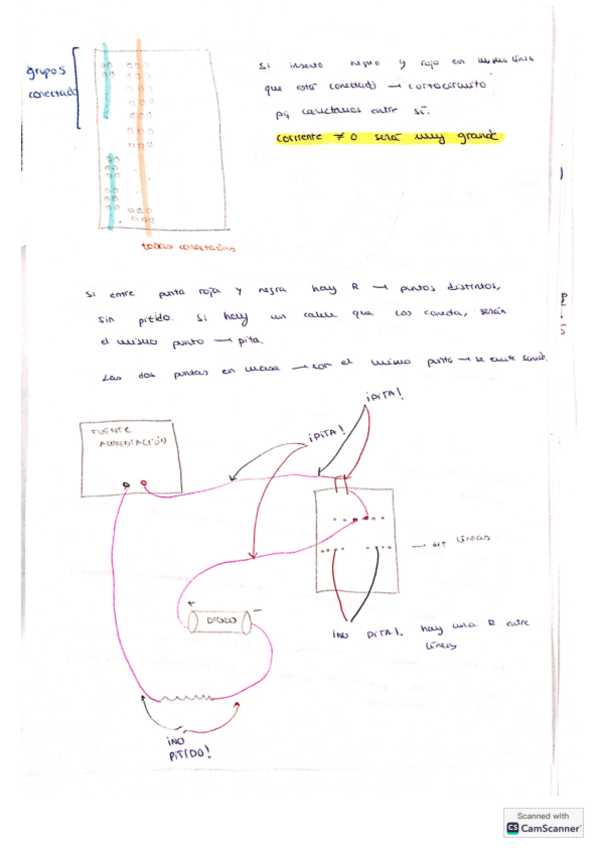 grupos
conectado
Si inserto negro y rojo en misma línea
que está conectado → cortocircuito
pq conectamos entre sí.
corriente ≠ 0 será muy grande
todos conectados
Si entre punta roja y negra hay R → puntos distintos,
sin pitido. Si hay un cable que los conecta, serán
el mismo punto → pita.
Las dos puntas en masa → son el mismo punto → se emite sonido.
¡PITA!
¡PITA!
FUENTE
ALIMENTACIÓN
→ líneas
+
DIODO
-
¡NO PITA!. hay una R entre
líneas
¡NO
PITIDO!
Scanned with
CS CamScanner